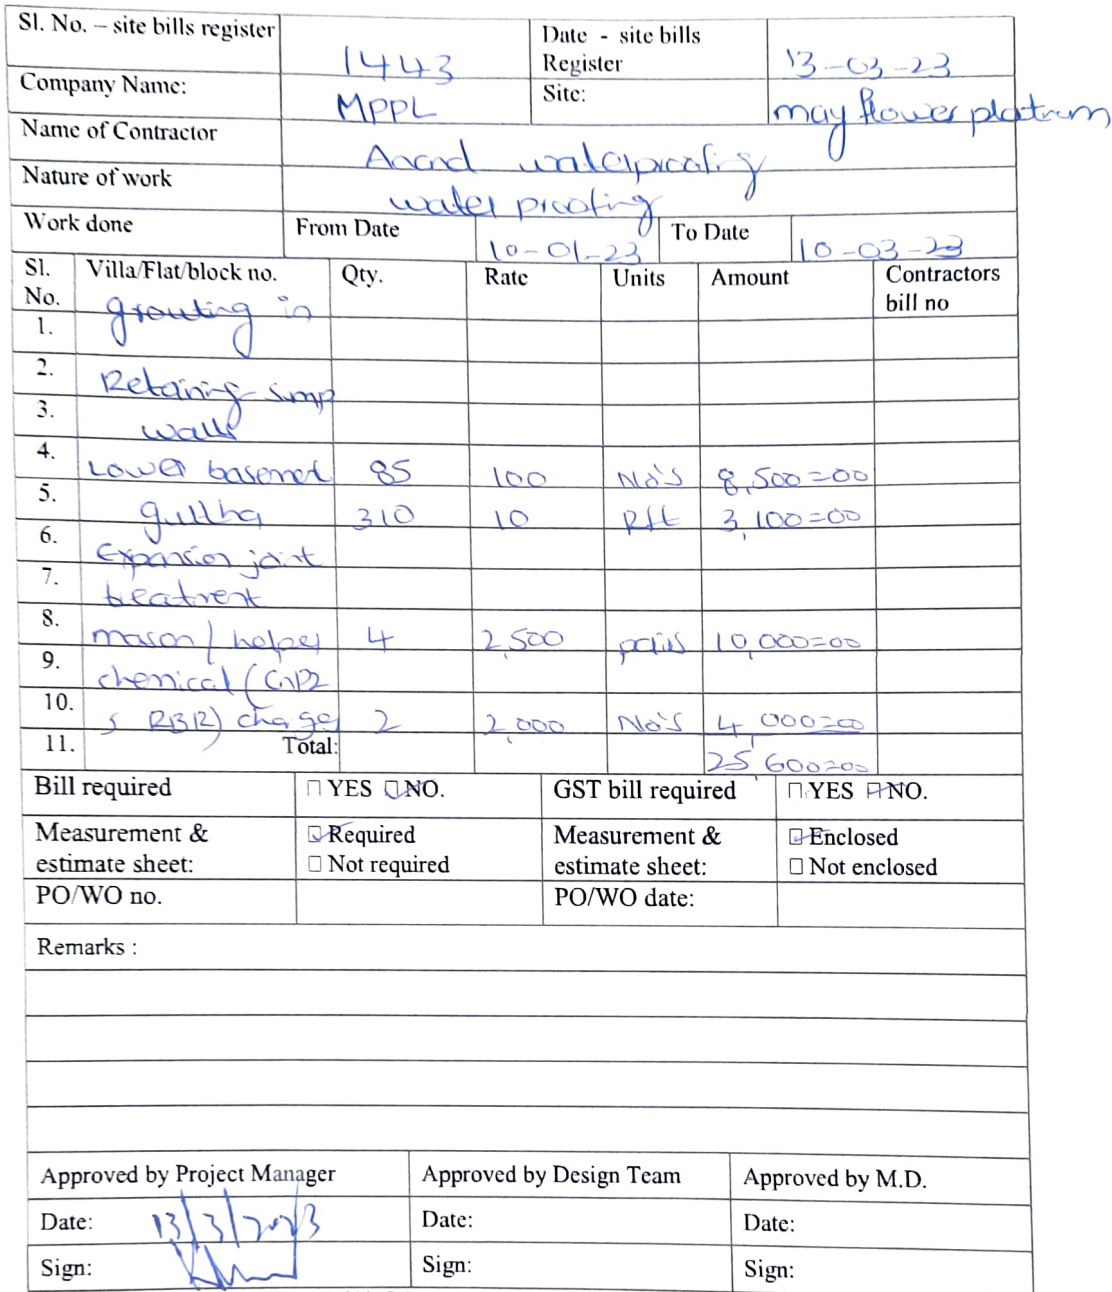 Sl. No. – site bills register 1443 Date - site bills Register 13-03-23
Company Name: MPPL Site: may flower platinum
Name of Contractor Anand waterproofing
Nature of work water proofing
Work done From Date 10-01-23 To Date 10-03-23
Sl. No. Villa/Flat/block no. Qty. Rate Units Amount Contractors bill no
1. grouting in
2. Retaining sump
3. walls
4. Lower basement 85 100 No's 8,500=00
5. 310 10 Rft 3,100=00
6. Expansion joint
7. treatment
8. mason / helper 4 2,500 pairs 10,000=00
9. chemical (
10. RBR) charges 2 2,000 No's 4,000=00
11. Total: 25,600=00
Bill required □ YES □ NO. GST bill required □ YES □ NO.
Measurement & estimate sheet: □ Required □ Not required Measurement & estimate sheet: □ Enclosed □ Not enclosed
PO/WO no. PO/WO date:
Remarks :
Approved by Project Manager Approved by Design Team Approved by M.D.
Date: 13/3/2023 Date: Date:
Sign: Sign: Sign: